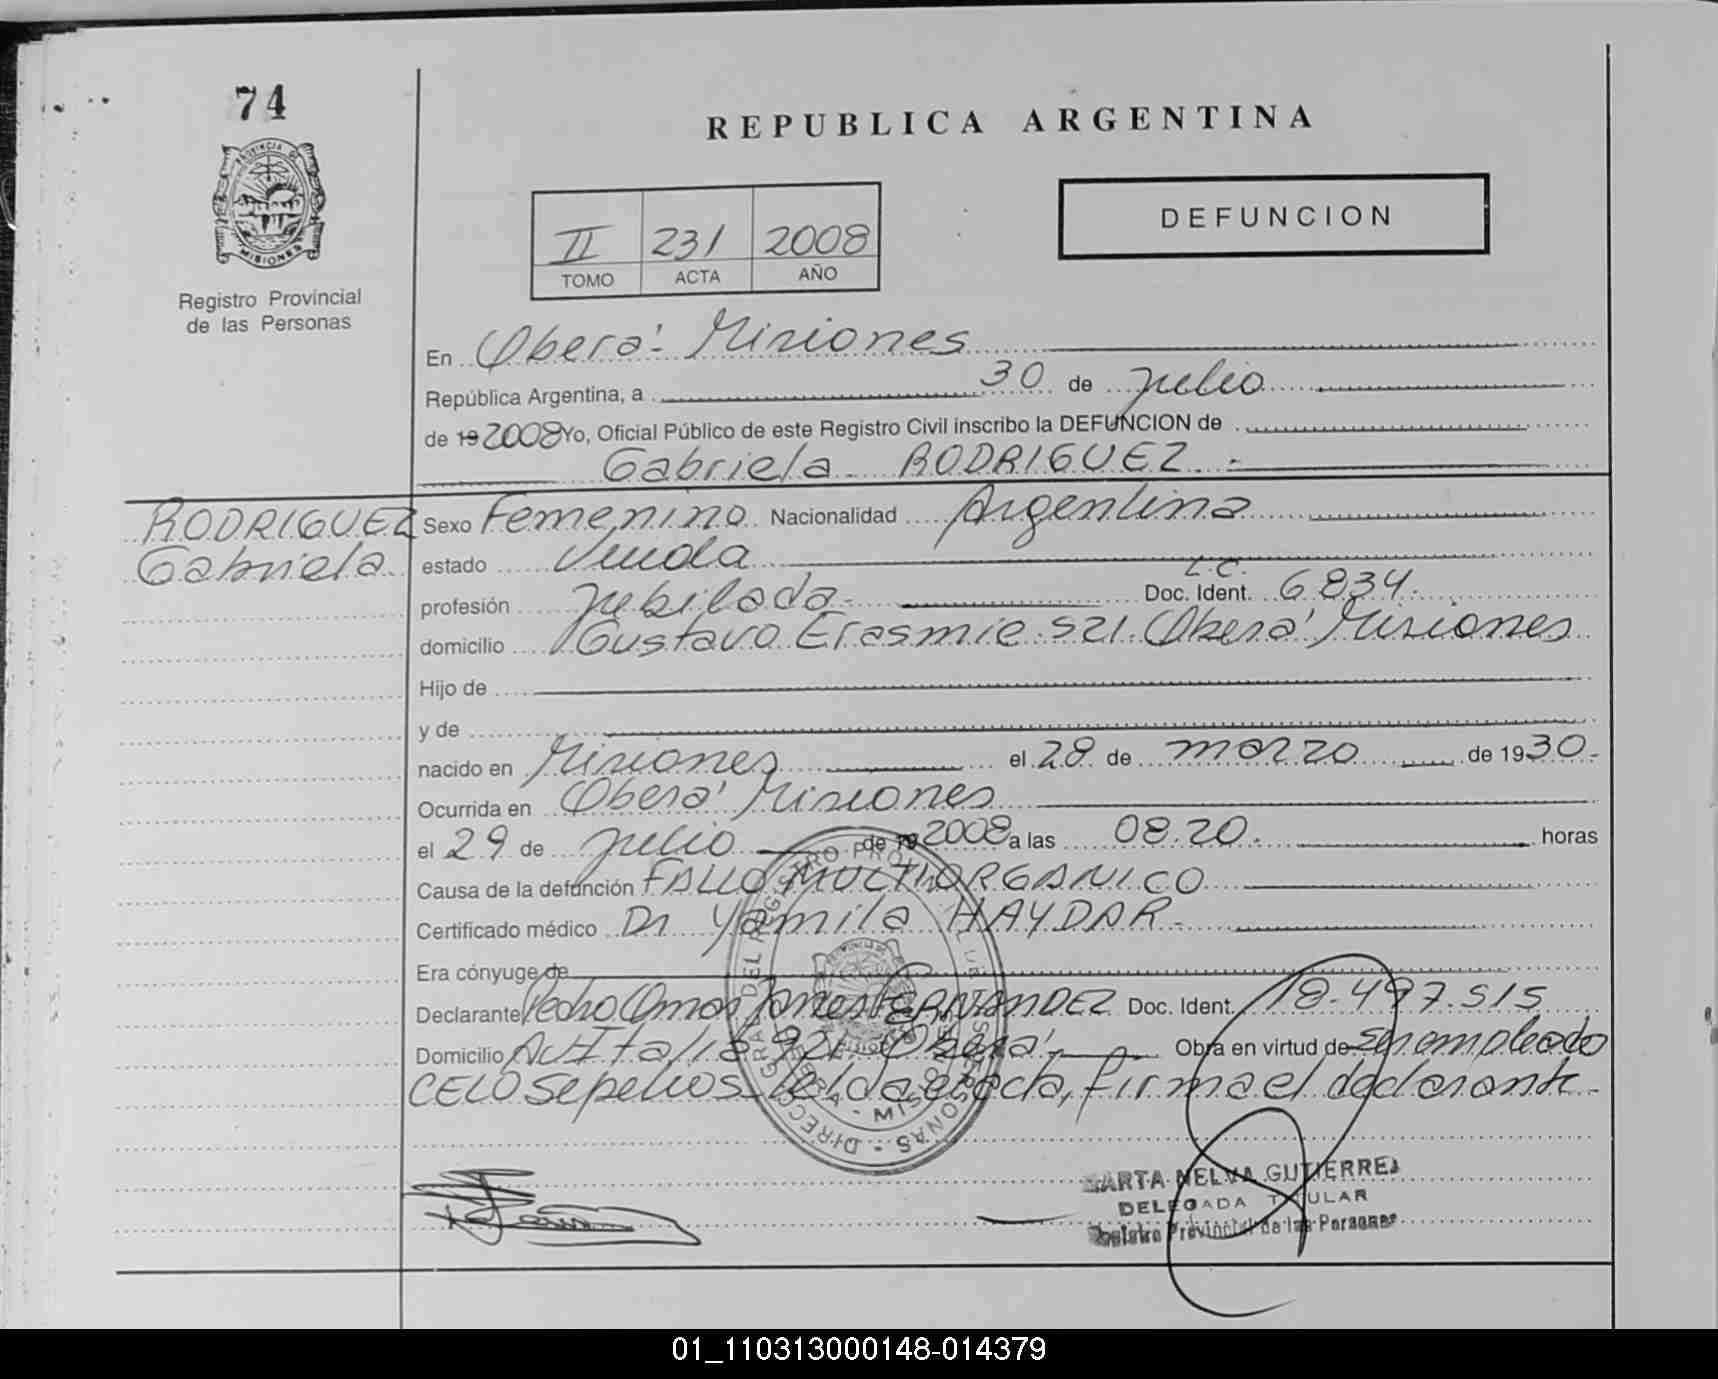 74
REPUBLICA ARGENTINA
PROVINCIA DE
MISIONES
Registro Provincial
de las Personas
II 231 2008
TOMO ACTA AÑO
DEFUNCION
En Oberá - Misiones
República Argentina, a 30 de julio
de 19 2008 Yo, Oficial Público de este Registro Civil inscribo la DEFUNCION de
Gabriela RODRIGUEZ.-
RODRIGUEZ
Gabriela
Sexo Femenino Nacionalidad Argentina
estado Viuda
L.C.
profesión Jubilada.- Doc. Ident. 6834.
domicilio Gustavo Erasmie 521. Oberá Misiones
Hijo de
y de
nacido en Misiones el 28 de marzo de 1930.-
Ocurrida en Oberá Misiones
el 29 de julio de 19 2008 a las 08.20. horas
Causa de la defunción FALLO MULTIORGANICO
Certificado médico Dr Yamila HAYDAR.-
Era cónyuge de
Declarante Pedro Omar FERNANDEZ Doc. Ident. 18.497.515
Domicilio Av Italia 921. Oberá.- Obra en virtud de ser empleado
CELO Sepelios. Leída el acta, firma el declarante.-
MARTA NELVA GUTIERREZ
DELEGADA TITULAR
Registro Provincial de las Personas
01_110313000148-014379